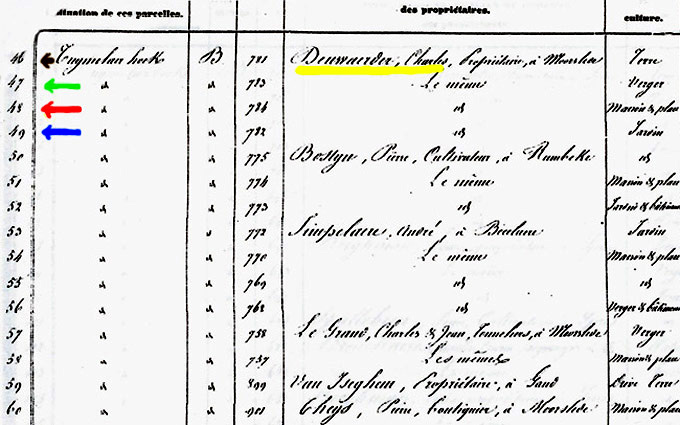 situation de ces parcelles. des propriétaires. culture.
46 hoek B 781 Deurwaerder, Charles, Propriétaire, à Moorslede Terre
47 " " 783 Le même Verger
48 " " 784 id Maison & plan
49 " " 782 id Jardin
50 " " 775 Bostyn, Pierre, Cultivateur, à Rumbeke id
51 " " 774 Le même Maison & plan
52 " " 773 id Jardin & bâtimen
53 " " 772 Simpelaere, André, à Jardin
54 " " 770 Le même Maison & plan
55 " " 769 id id
56 " " 768 id Verger & bâtimen
57 " " 758 Le Grand, Charles & Jean, à Moorslede Verger
58 " " 757 Les mêmes Maison & plan
59 " " 899 Van Iseghem, Propriétaire, à Gand Terre
60 " " 901 Gheys, Pierre, boutiquier, à Moorslede Maison & plan